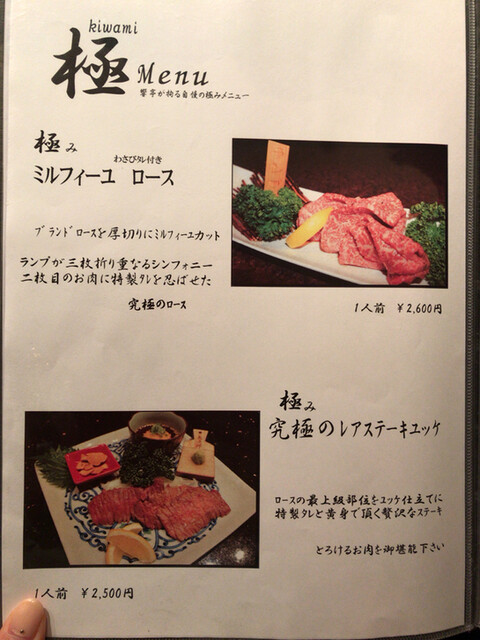 kiwami
極 Menu
響亭が拘る自慢の極みメニュー
極み
わさびタレ付き
ミルフィーユ ロース
ブランドロースを厚切りにミルフィーユカット
ランプが三枚折り重なるシンフォニー
二枚目のお肉に特製タレを忍ばせた
究極のロース
1人前 ￥2,600円
極み
究極のレアステーキユッケ
ロースの最上級部位をユッケ仕立てに
特製タレと黄身で頂く贅沢なステーキ
とろけるお肉を御堪能下さい
1人前 ￥2,500円